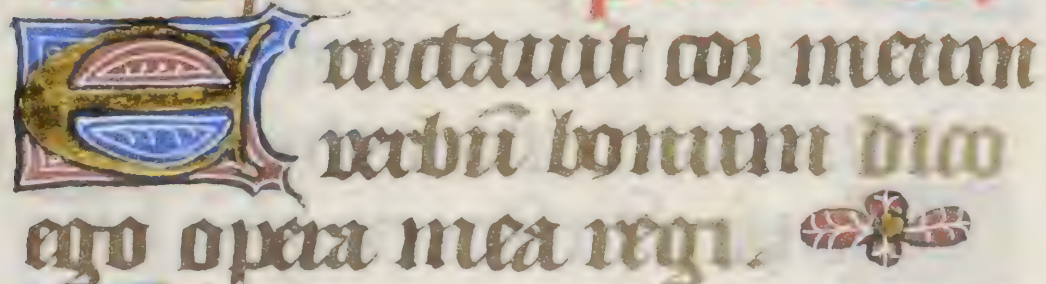 Eructauit cor meum
verbū bonum dico
ego opera mea regi.